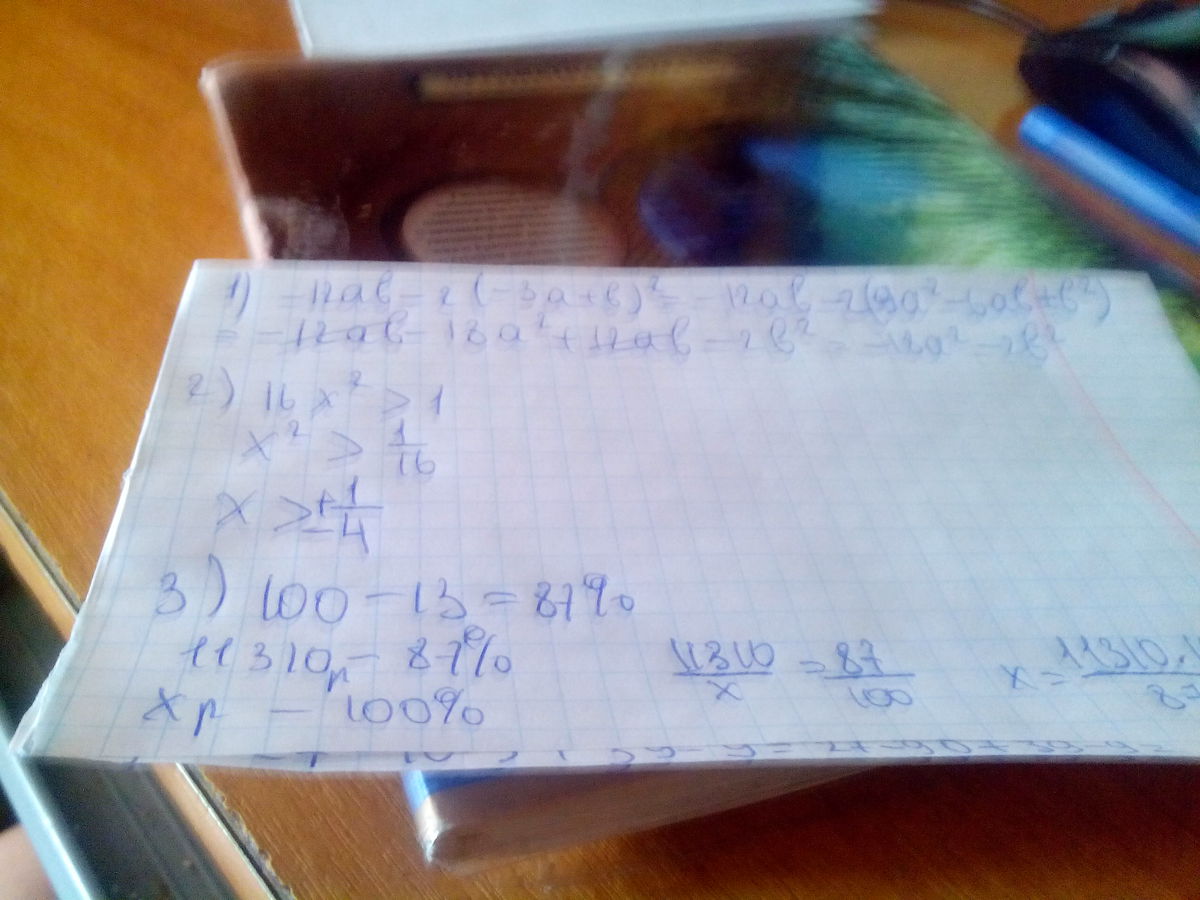 1) -12ab - 2(-3a+b)² = -12ab - 2(9a² - 6ab + b²)
= -12ab - 18a² + 12ab - 2b² = -18a² - 2b²
2) 16x² > 1
x² > 1/16
x > ± 1/4
3) 100 - 13 = 87%
11310р - 87%
xр - 100%
11310/x = 87/100
x =